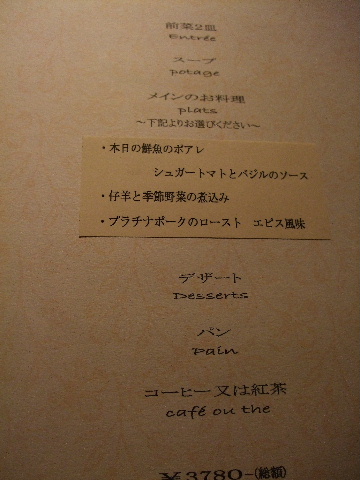 前菜2皿
Entrée
スープ
potage
メインのお料理
plats
～下記よりお選びください～
・本日の鮮魚のポアレ
シュガートマトとバジルのソース
・仔羊と季節野菜の煮込み
・プラチナポークのロースト　エピス風味
デザート
Desserts
パン
pain
コーヒー又は紅茶
café ou the
￥3780-(総額)